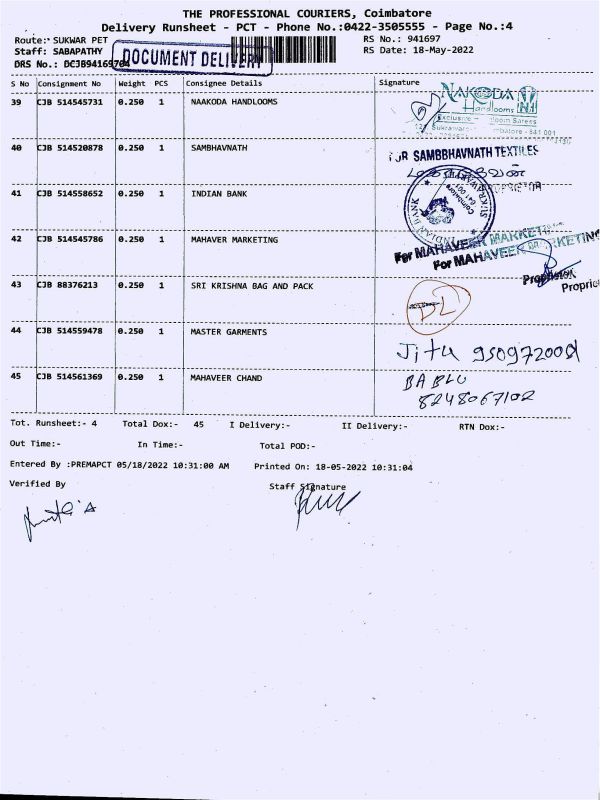 THE PROFESSIONAL COURIERS, Coimbatore
Delivery Runsheet - PCT - Phone No.:0422-3505555 - Page No.:4
Route:- SUKWAR PET RS No.: 941697
Staff: SABAPATHY RS Date: 18-May-2022
DRS No.: DCJB94169704
DOCUMENT DELIVERY
S No Consignment No Weight PCS Consignee Details Signature
39 CJB 514545731 0.250 1 NAAKODA HANDLOOMS
NAKODA
Handlooms
Exclusive
40 CJB 514520878 0.250 1 SAMBHAVNATH
SAMBBHAVNATH TEXTILES
PROPRIETOR
41 CJB 514558652 0.250 1 INDIAN BANK
INDIAN BANK
Coimbatore
641 001
42 CJB 514545786 0.250 1 MAHAVER MARKETING
For MAHAVEER MARKETING
For MAHAVEER MARKETING
Proprietor
43 CJB 88376213 0.250 1 SRI KRISHNA BAG AND PACK
DL
44 CJB 514559478 0.250 1 MASTER GARMENTS
Jitu
45 CJB 514561369 0.250 1 MAHAVEER CHAND
BABLU
8248067102
Tot. Runsheet:- 4 Total Dox:- 45 I Delivery:- II Delivery:- RTN Dox:-
Out Time:- In Time:- Total POD:-
Entered By :PREMAPCT 05/18/2022 10:31:00 AM Printed On: 18-05-2022 10:31:04
Verified By Staff Signature